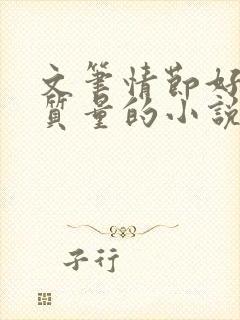 文筆情節好
質量的小說
子行